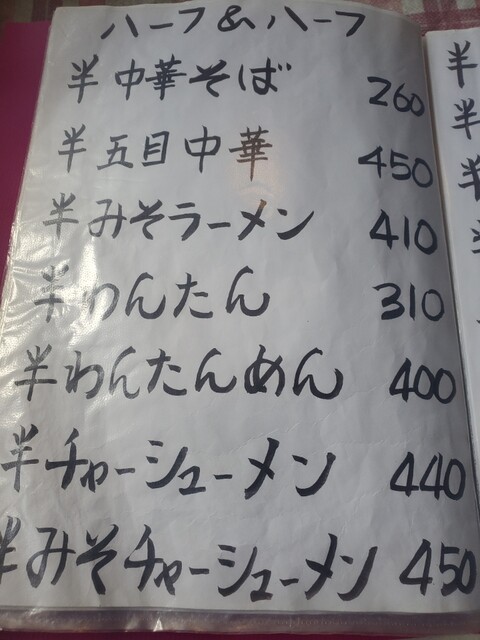 ハーフ&ハーフ
半中華そば 260
半五目中華 450
半みそラーメン 410
半わんたん 310
半わんたんめん 400
半チャーシューメン 440
半みそチャーシューメン 450
半
半
半